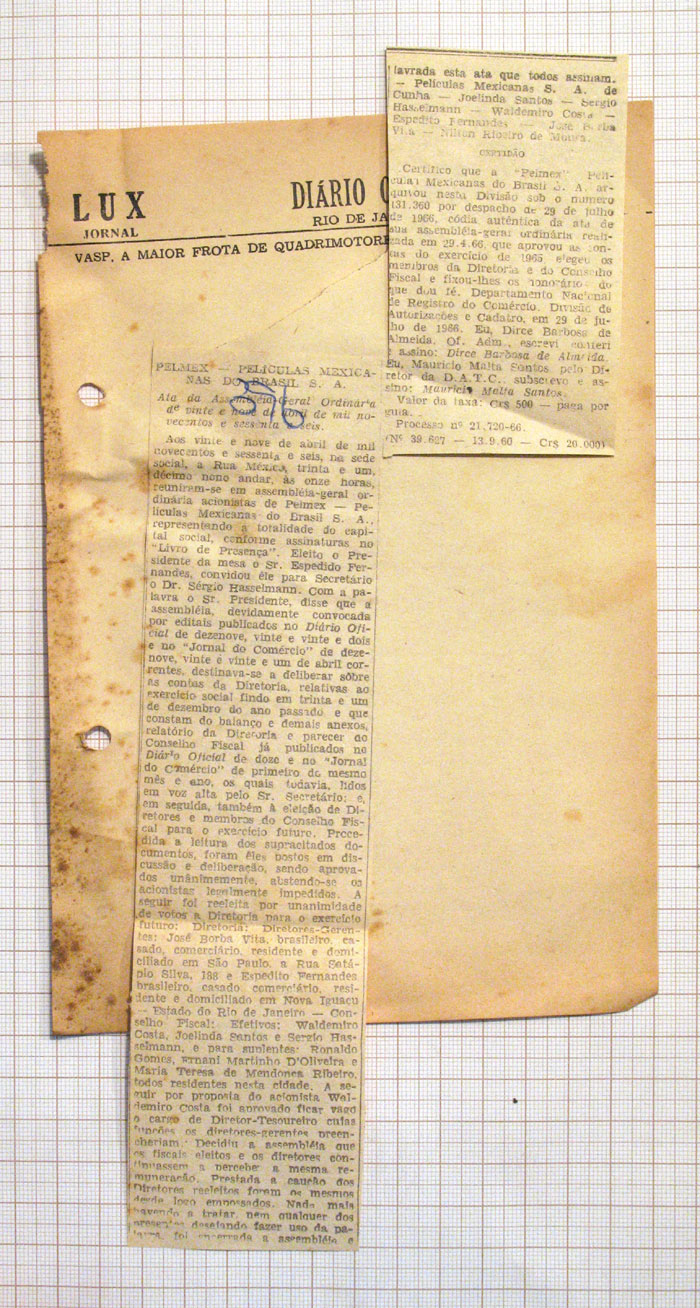 LUX
JORNAL
DIÁRIO
RIO DE JA
VASP. A MAIOR FROTA DE QUADRIMOTORE
576
PELMEX — PELÍCULAS MEXICA-
NAS DO BRASIL S. A.
Ata da Assembléia Geral Ordinária
de vinte e nove de abril de mil no-
vecentos e sessenta e seis.
Aos vinte e nove de abril de mil
novecentos e sessenta e seis, na sede
social, a Rua México, trinta e um,
décimo nono andar, às onze horas,
reuniram-se em assembléia-geral or-
dinária acionistas de Pelmex — Pe-
lículas Mexicanas do Brasil S. A.,
representando a totalidade do capi-
tal social, conforme assinaturas no
"Livro de Presença". Eleito o Pre-
sidente da mesa o Sr. Espedido Fer-
nandes, convidou êle para Secretário
o Dr. Sérgio Hasselmann. Com a pa-
lavra o Sr. Presidente, disse que a
assembléia, devidamente convocada
por editais publicados no Diário Ofi-
cial de dezenove, vinte e vinte e dois
e no "Jornal do Comércio" de deze-
nove, vinte e vinte e um de abril cor-
rentes, destinava-se a deliberar sôbre
as contas da Diretoria, relativas ao
exercício social findo em trinta e um
de dezembro do ano passado e que
constam do balanço e demais anexos,
relatório da Diretoria e parecer do
Conselho Fiscal já publicados no
Diário Oficial de doze e no "Jornal
do Comércio" de primeiro do mesmo
mês e ano, os quais todavia, lidos
em voz alta pelo Sr. Secretário; e,
em seguida, também à eleição de Di-
retores e membros do Conselho Fis-
cal para o exercício futuro. Proce-
dida a leitura dos supracitados do-
cumentos, foram êles postos em dis-
cussão e deliberação, sendo aprova-
dos unânimemente, abstendo-se os
acionistas legalmente impedidos. A
seguir foi reeleita por unanimidade
de votos a Diretoria para o exercício
futuro: Diretoria: Diretores-Geren-
tes: José Borba Vita, brasileiro, ca-
sado, comerciário, residente e domi-
ciliado em São Paulo, a Rua
Silva, 188 e Espedito Fernandes
brasileiro, casado comerciário, resi-
dente e domiciliado em Nova Iguaçu
— Estado do Rio de Janeiro — Con-
selho Fiscal: Efetivos: Waldemiro
Costa, Joelinda Santos e Sergio Has-
selmann, e para suplentes: Ronaldo
Gomes, Ernani Martinho D'Oliveira e
Maria Teresa de Mendonca Ribeiro,
todos residentes nesta cidade. A se-
guir por proposta do acionista Wal-
demiro Costa foi aprovado ficar vago
o cargo de Diretor-Tesoureiro cujas
funções os diretores-gerentes preen-
cheriam. Decidiu a assembléia que
os fiscais eleitos e os diretores con-
tinuassem a perceber a mesma re-
muneração. Prestada a caução dos
Diretores reeleitos foram os mesmos
desde logo empossados. Nada mais
havendo a tratar, nem qualquer dos
presentes desejando fazer uso da pa-
lavra, foi encerrada a assembléia e
lavrada esta ata que todos assinam.
— Películas Mexicanas S. A. de
Cunha — Joelinda Santos — Sergio
Hasselmann — Waldemiro Costa —
Espedito Fernandes — José Borba
Vita — Nilton Ribeiro de Moura.
CERTIDÃO
Certifico que a "Pelmex" Pelí-
culas Mexicanas do Brasil S. A. ar-
quivou nesta Divisão sob o numero
131.360 por despacho de 29 de julho
de 1966, códia autêntica da ata de
sua assembléia-geral ordinária reali-
zada em 29.4.66, que aprovou as con-
tas do exercício de 1965 elegeu os
membros da Diretoria e do Conselho
Fiscal e fixou-lhes os honorários do
que dou fé. Departamento Nacional
de Registro do Comércio. Divisão de
Autorizações e Cadatro, em 29 de ju-
lho de 1966. Eu, Dirce Barbosa de
Almeida, Of. Adm., escrevi conferi
e assino: Dirce Barbosa de Almeida.
Eu, Mauricio Malta Santos pelo Di-
retor da D.A.T.C., subscrevo e as-
sino: Mauricio Malta Santos.
Valor da taxa: Cr$ 500 — paga por
guia.
Processo nº 21.720-66.
(Nº 39.627 — 13.9.60 — Cr$ 20.000)